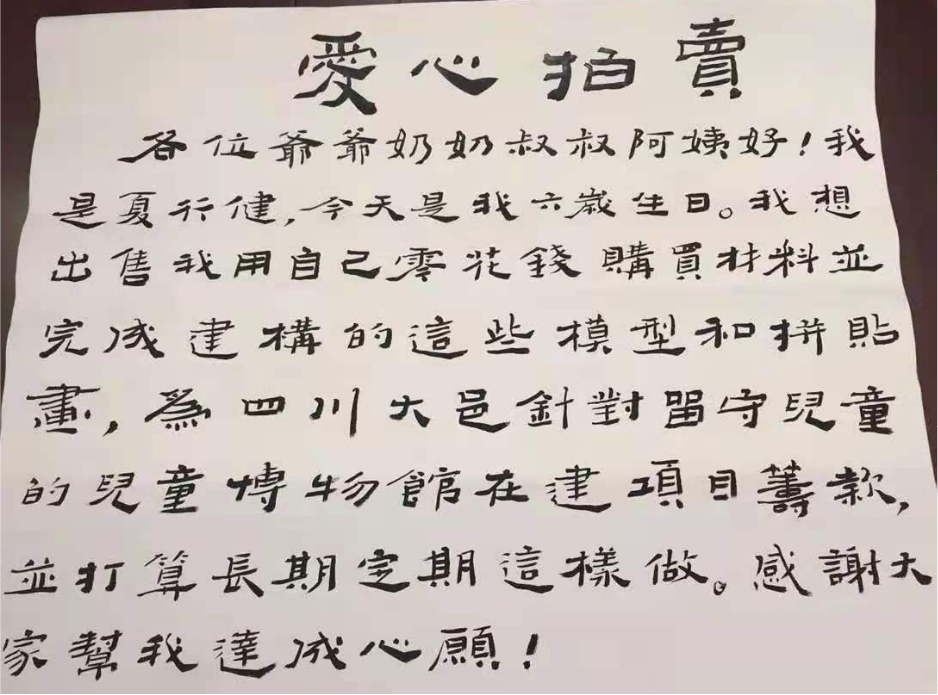 愛心拍賣
各位爺爺奶奶叔叔阿姨好！我
是夏行健，今天是我六歲生日。我想
出售我用自己零花錢購買材料並
完成建構的這些模型和拼貼
畫，為四川大邑針對留守兒童
的兒童博物館在建項目籌款，
並打算長期定期這樣做。感謝大
家幫我達成心願！